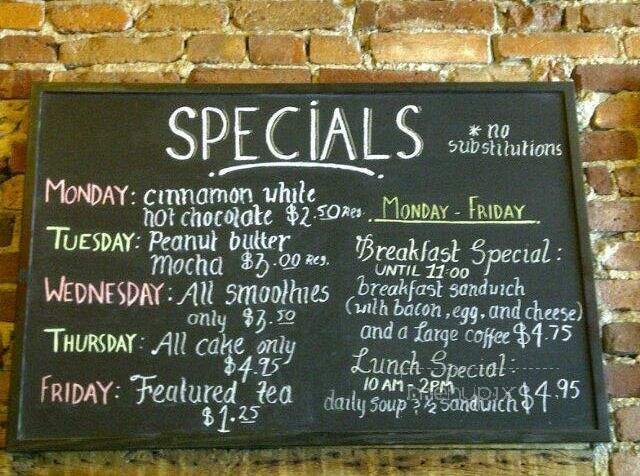 SPECIALS
* no
substitutions
MONDAY: cinnamon white
hot chocolate $2.50 Reg.
TUESDAY: Peanut butter
Mocha $3.00 Reg.
WEDNESDAY: All smoothies
only $3.50
THURSDAY: All cake only
$4.95
FRIDAY: Featured tea
$1.25
MONDAY - FRIDAY
Breakfast Special:
UNTIL 11:00
breakfast sandwich
(with bacon, egg, and cheese)
and a Large coffee $4.75
Lunch Special:
10 AM - 2PM
daily soup & ½ sandwich $4.95